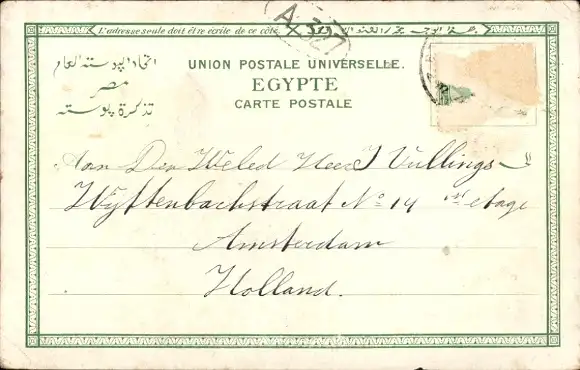 L'adresse seule doit être écrite de ce côté
A. 327
UNION POSTALE UNIVERSELLE.
اتحاد البوسته العام
EGYPTE
مصر
CARTE POSTALE
تذكرة بوسته
Aan Den Weled Heer J Vullings
Wyttenbachstraat No 14 1st etage
Amsterdam
Holland.